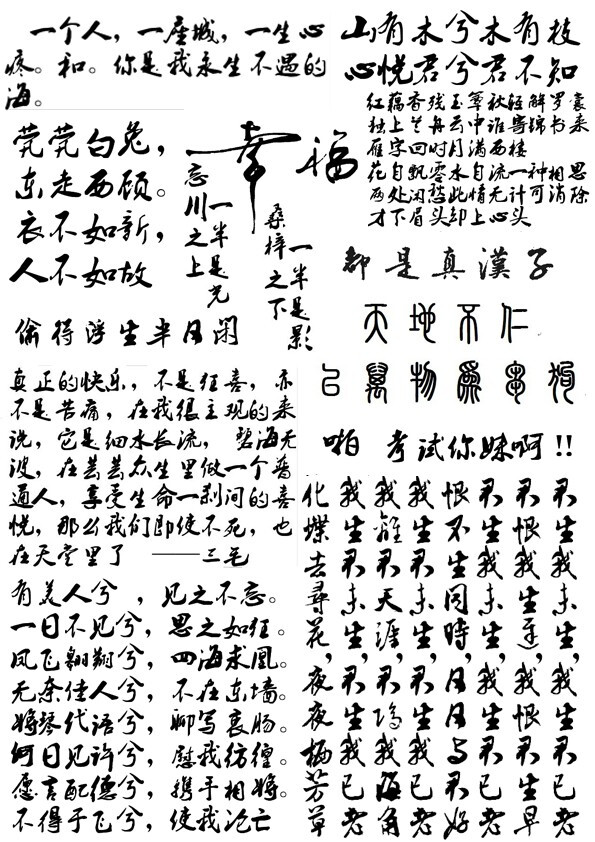 一个人，一座城，一生心
疼。和。你是我永生不遇的
海。
山有木兮木有枝
心悦君兮君不知
红藕香残玉簟秋轻解罗裳
独上兰舟云中谁寄锦书来
雁字回时月满西楼
花自飘零水自流一种相思
两处闲愁此情无计可消除
才下眉头却上心头
茕茕白兔，
东走西顾。
衣不如新，
人不如故
幸福
忘川之上
一半是光
桑梓之下
一半是影
都是真漢子
天地不仁
㠯萬物為芻狗
偷得浮生半日闲
真正的快乐，不是狂喜，亦
不是苦痛，在我很主观的来
说，它是细水长流，碧海无
波，在芸芸众生里做一个普
通人，享受生命一刹间的喜
悦，那么我们即使不死，也
在天堂里了 ——三毛
啪 考试你妹啊!!
君生我未生，我生君已老
君恨我生迟，我恨君生早
君生我未生，我生君已老
恨不生同時，日日与君好
我生君未生，君生我已老
我離君天涯，君隔我海角
我生君未生，君生我已老
化蝶去尋花，夜夜栖芳草
有美人兮，见之不忘。
一日不见兮，思之如狂。
凤飞翱翔兮，四海求凰。
无奈佳人兮，不在东墙。
将琴代语兮，聊写衷肠。
何日见许兮，慰我彷徨。
愿言配德兮，携手相将。
不得于飞兮，使我沦亡